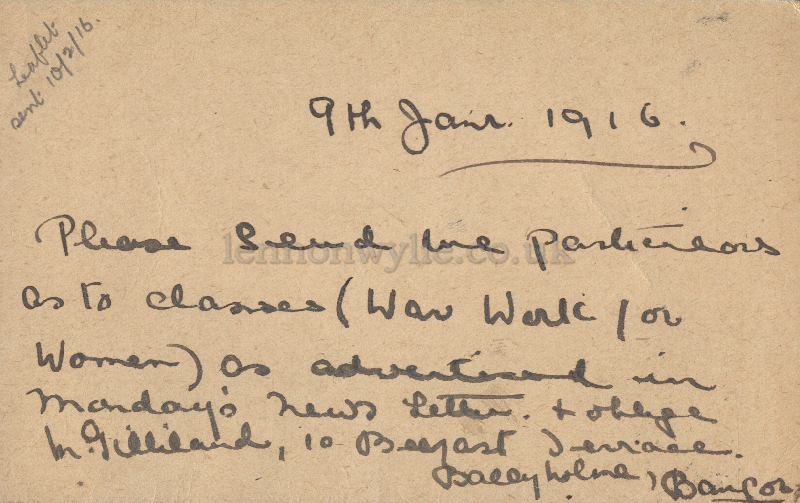 Leaflet
sent 10/2/16.
9th Janr. 1916.
Please Send me particulars
as to classes (War Work for
Women) as advertised in
Monday's News Letter. & oblige
M. Gilliland, 10 Belfast Terrace.
Ballyholme, Bangor.
lennonwylie.co.uk